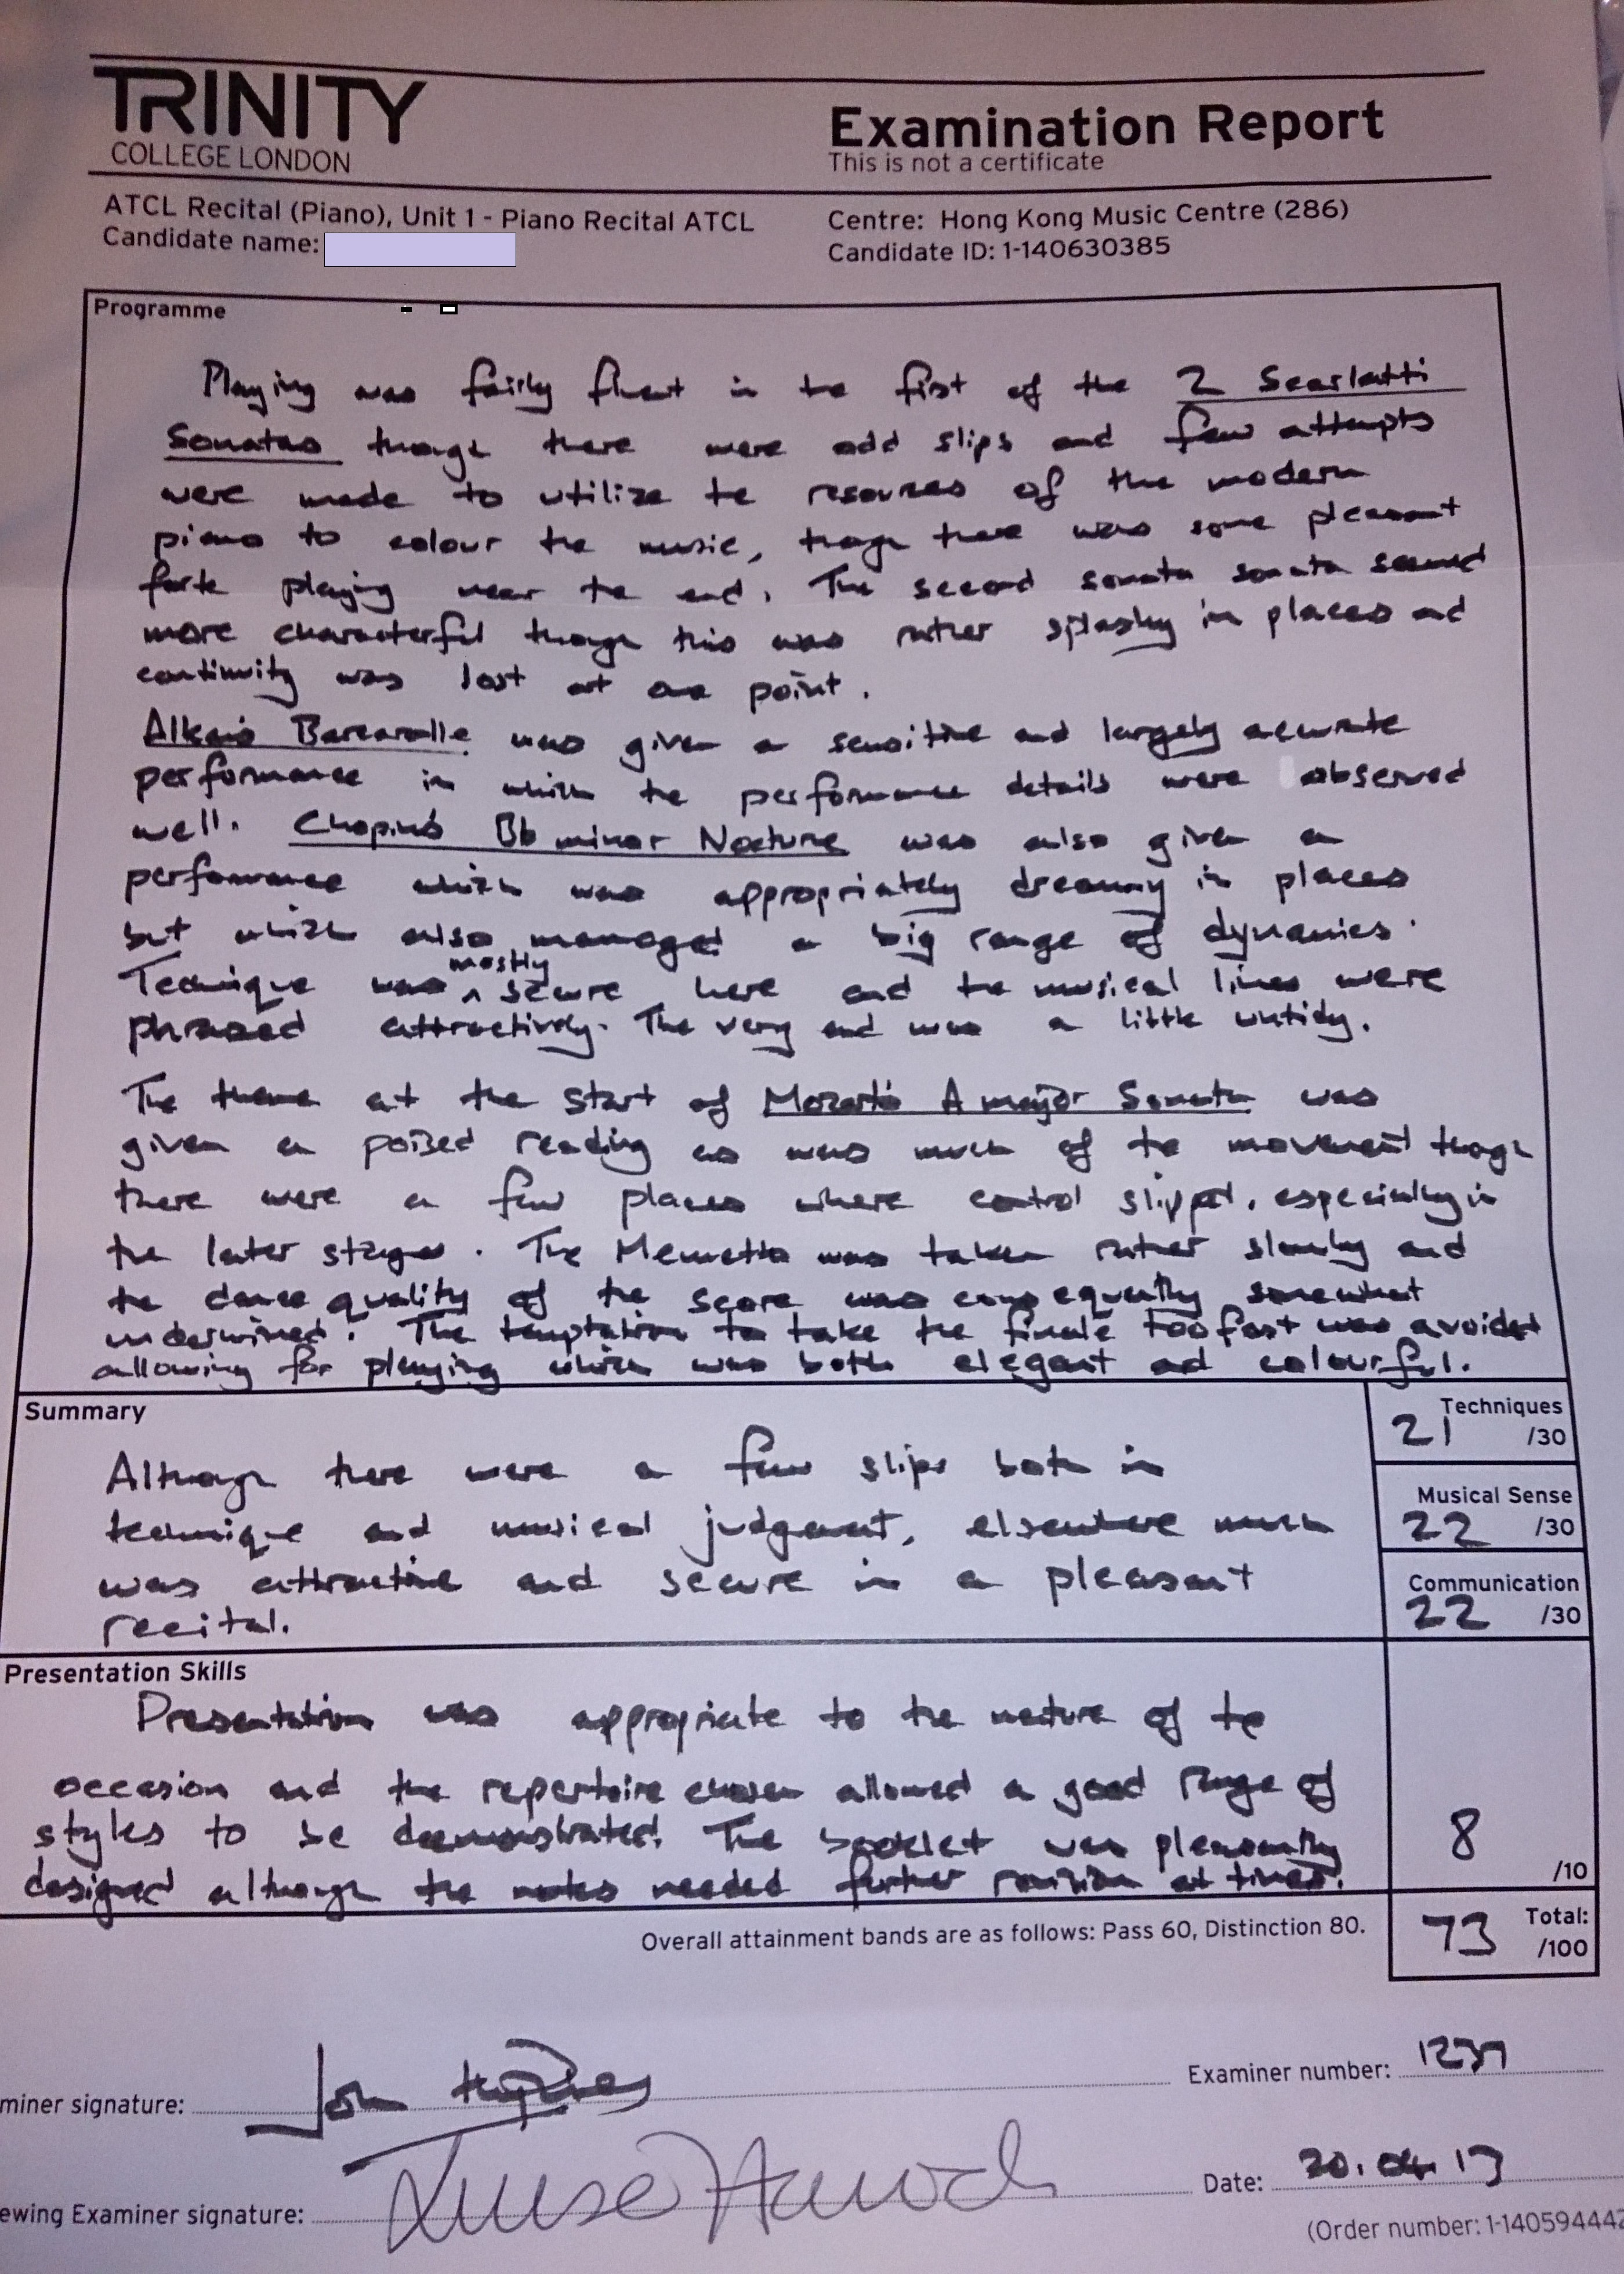 TRINITY
COLLEGE LONDON
Examination Report
This is not a certificate
ATCL Recital (Piano), Unit 1 - Piano Recital ATCL
Centre: Hong Kong Music Centre (286)
Candidate name:
Candidate ID: 1-140630385
Programme
Playing was fairly fluent in the first of the 2 Scarlatti
Sonatas though there were odd slips and few attempts
were made to utilize the resources of the modern
piano to colour the music, though there was some pleasant
forte playing near the end. The second sonata sonata seemed
more characterful though this was rather splashy in places and
continuity was lost at one point.
Alkan's Barcarolle was given a sensitive and largely accurate
performance in which the performance details were observed
well. Chopin's Bb minor Nocturne was also given a
performance which was appropriately dreamy in places
but which also managed a big range of dynamics.
Technique was mostly secure here and the musical lines were
phrased attractively. The very end was a little untidy.
The theme at the start of Mozart's A major Sonata was
given a poised reading as was much of the movement though
there were a few places where control slipped, especially in
the later stages. The Menuetto was taken rather slowly and
the dance quality of the score was consequently somewhat
undermined. The temptation to take the finale too fast was avoided
allowing for playing which was both elegant and colourful.
Summary
Although there were a few slips both in
technique and musical judgment, elsewhere much
was attractive and secure in a pleasant
recital.
Techniques
21 /30
Musical Sense
22 /30
Communication
22 /30
Presentation Skills
Presentation was appropriate to the nature of the
occasion and the repertoire chosen allowed a good range of
styles to be demonstrated. The booklet was pleasantly
designed although the notes needed further revision at times.
8 /10
Overall attainment bands are as follows: Pass 60, Distinction 80.
73 Total: /100
miner signature: John Hughes
Examiner number:
ewing Examiner signature:
Date:
(Order number: 1-140594442